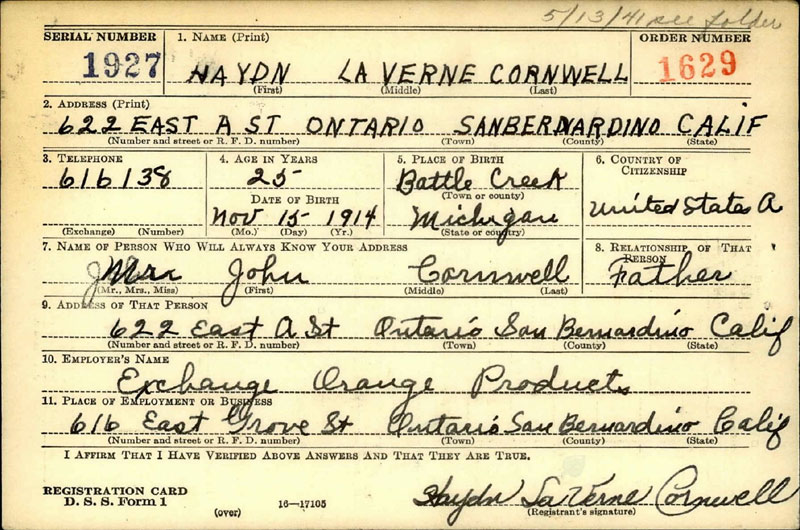 5/13/41 see folder
SERIAL NUMBER 1. NAME (Print) ORDER NUMBER
1927 HAYDN LA VERNE CORNWELL 1629
(First) (Middle) (Last)
2. ADDRESS (Print)
622 EAST A ST ONTARIO SANBERNARDINO CALIF
(Number and street or R. F. D. number) (Town) (County) (State)
3. TELEPHONE 4. AGE IN YEARS 5. PLACE OF BIRTH 6. COUNTRY OF CITIZENSHIP
616138 25 Battle Creek
(Town or county)
DATE OF BIRTH
Nov 15 1914 Michigan United States A
(Exchange) (Number) (Mo.) (Day) (Yr.) (State or country)
7. NAME OF PERSON WHO WILL ALWAYS KNOW YOUR ADDRESS 8. RELATIONSHIP OF THAT PERSON
John Cornwell Father
(Mr., Mrs., Miss) (First) (Middle) (Last)
9. ADDRESS OF THAT PERSON
622 East A St Ontario San Bernardino Calif
(Number and street or R. F. D. number) (Town) (County) (State)
10. EMPLOYER'S NAME
Exchange Orange Products
11. PLACE OF EMPLOYMENT OR BUSINESS
616 East Grove St Ontario San Bernardino Calif
(Number and street or R. F. D. number) (Town) (County) (State)
I AFFIRM THAT I HAVE VERIFIED ABOVE ANSWERS AND THAT THEY ARE TRUE.
REGISTRATION CARD
D. S. S. Form 1 (over) 16—17105 Haydn LaVerne Cornwell
(Registrant's signature)